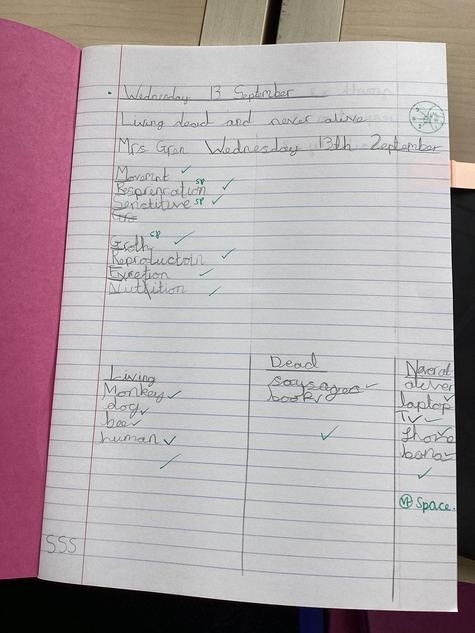 Wednesday 13 September
Living dead and never alive
Mrs Gren Wednesday 13th 2eptember
Movemint
Resprenration sp
Senstitive sp
Gre
Groth sp
Reproductoin
Exretion
Nuttrition
Living
Monkey
dog
bee
human
Dead
sausages
book
Neveral
aliver
laptop
TV
Space.
SSS